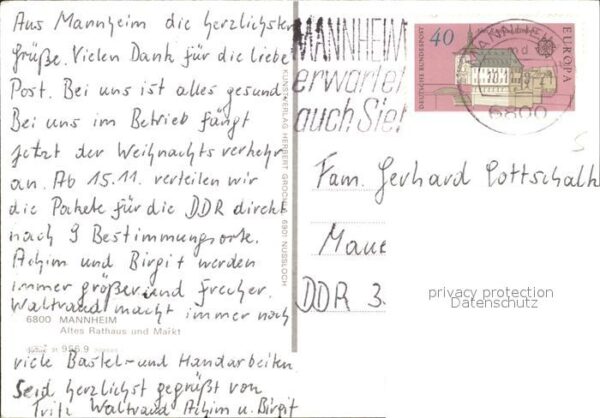 Aus Mannheim die herzlichsten
Grüße. Vielen Dank für die liebe
Post. Bei uns ist alles gesund.
Bei uns im Betrieb fängt
jetzt der Weihnachtsverkehr
an. Ab 15.11. verteilen wir
die Pakete für die DDR direkt
nach 9 Bestimmungsorte.
Achim und Birgit werden
immer größer und frecher.
Waltraud macht immer noch
6800 MANNHEIM
Altes Rathaus und Markt
956.9
viele Bastel- und Handarbeiten
Seid herzlichst gegrüßt von
Fritz Waltraud Achim u. Birgit
KUNSTVERLAG HERBERT GROCH 6901 NUSSLOCH
MANNHEIM
erwartet
auch Sie!
40
DEUTSCHE BUNDESPOST
EUROPA
6800
Fam. Gerhard Gottschalk
Maue
DDR 3
privacy protection
Datenschutz